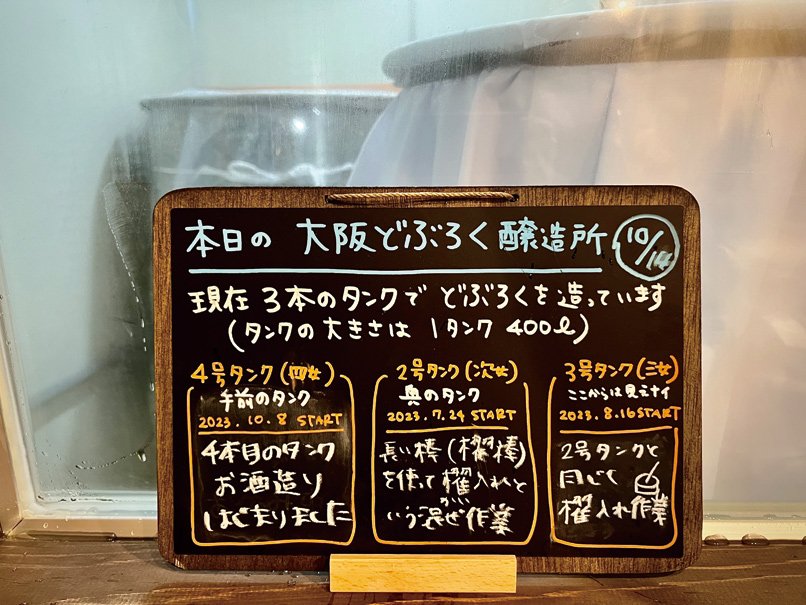 本日の 大阪どぶろく醸造所 10/14
現在 3本のタンクで どぶろくを造っています
(タンクの大きさは 1タンク 400ℓ)
4号タンク(四女)
手前のタンク
2023.10.8 START
4本目のタンク
お酒造り
はじまりました
2号タンク(次女)
奥のタンク
2023.7.24 START
長い棒(櫂棒)
を使って櫂入れと
かい
いう混ぜ作業
3号タンク(三女)
ここからは見えナイ
2023.8.16 START
2号タンクと
同じく
櫂入れ作業